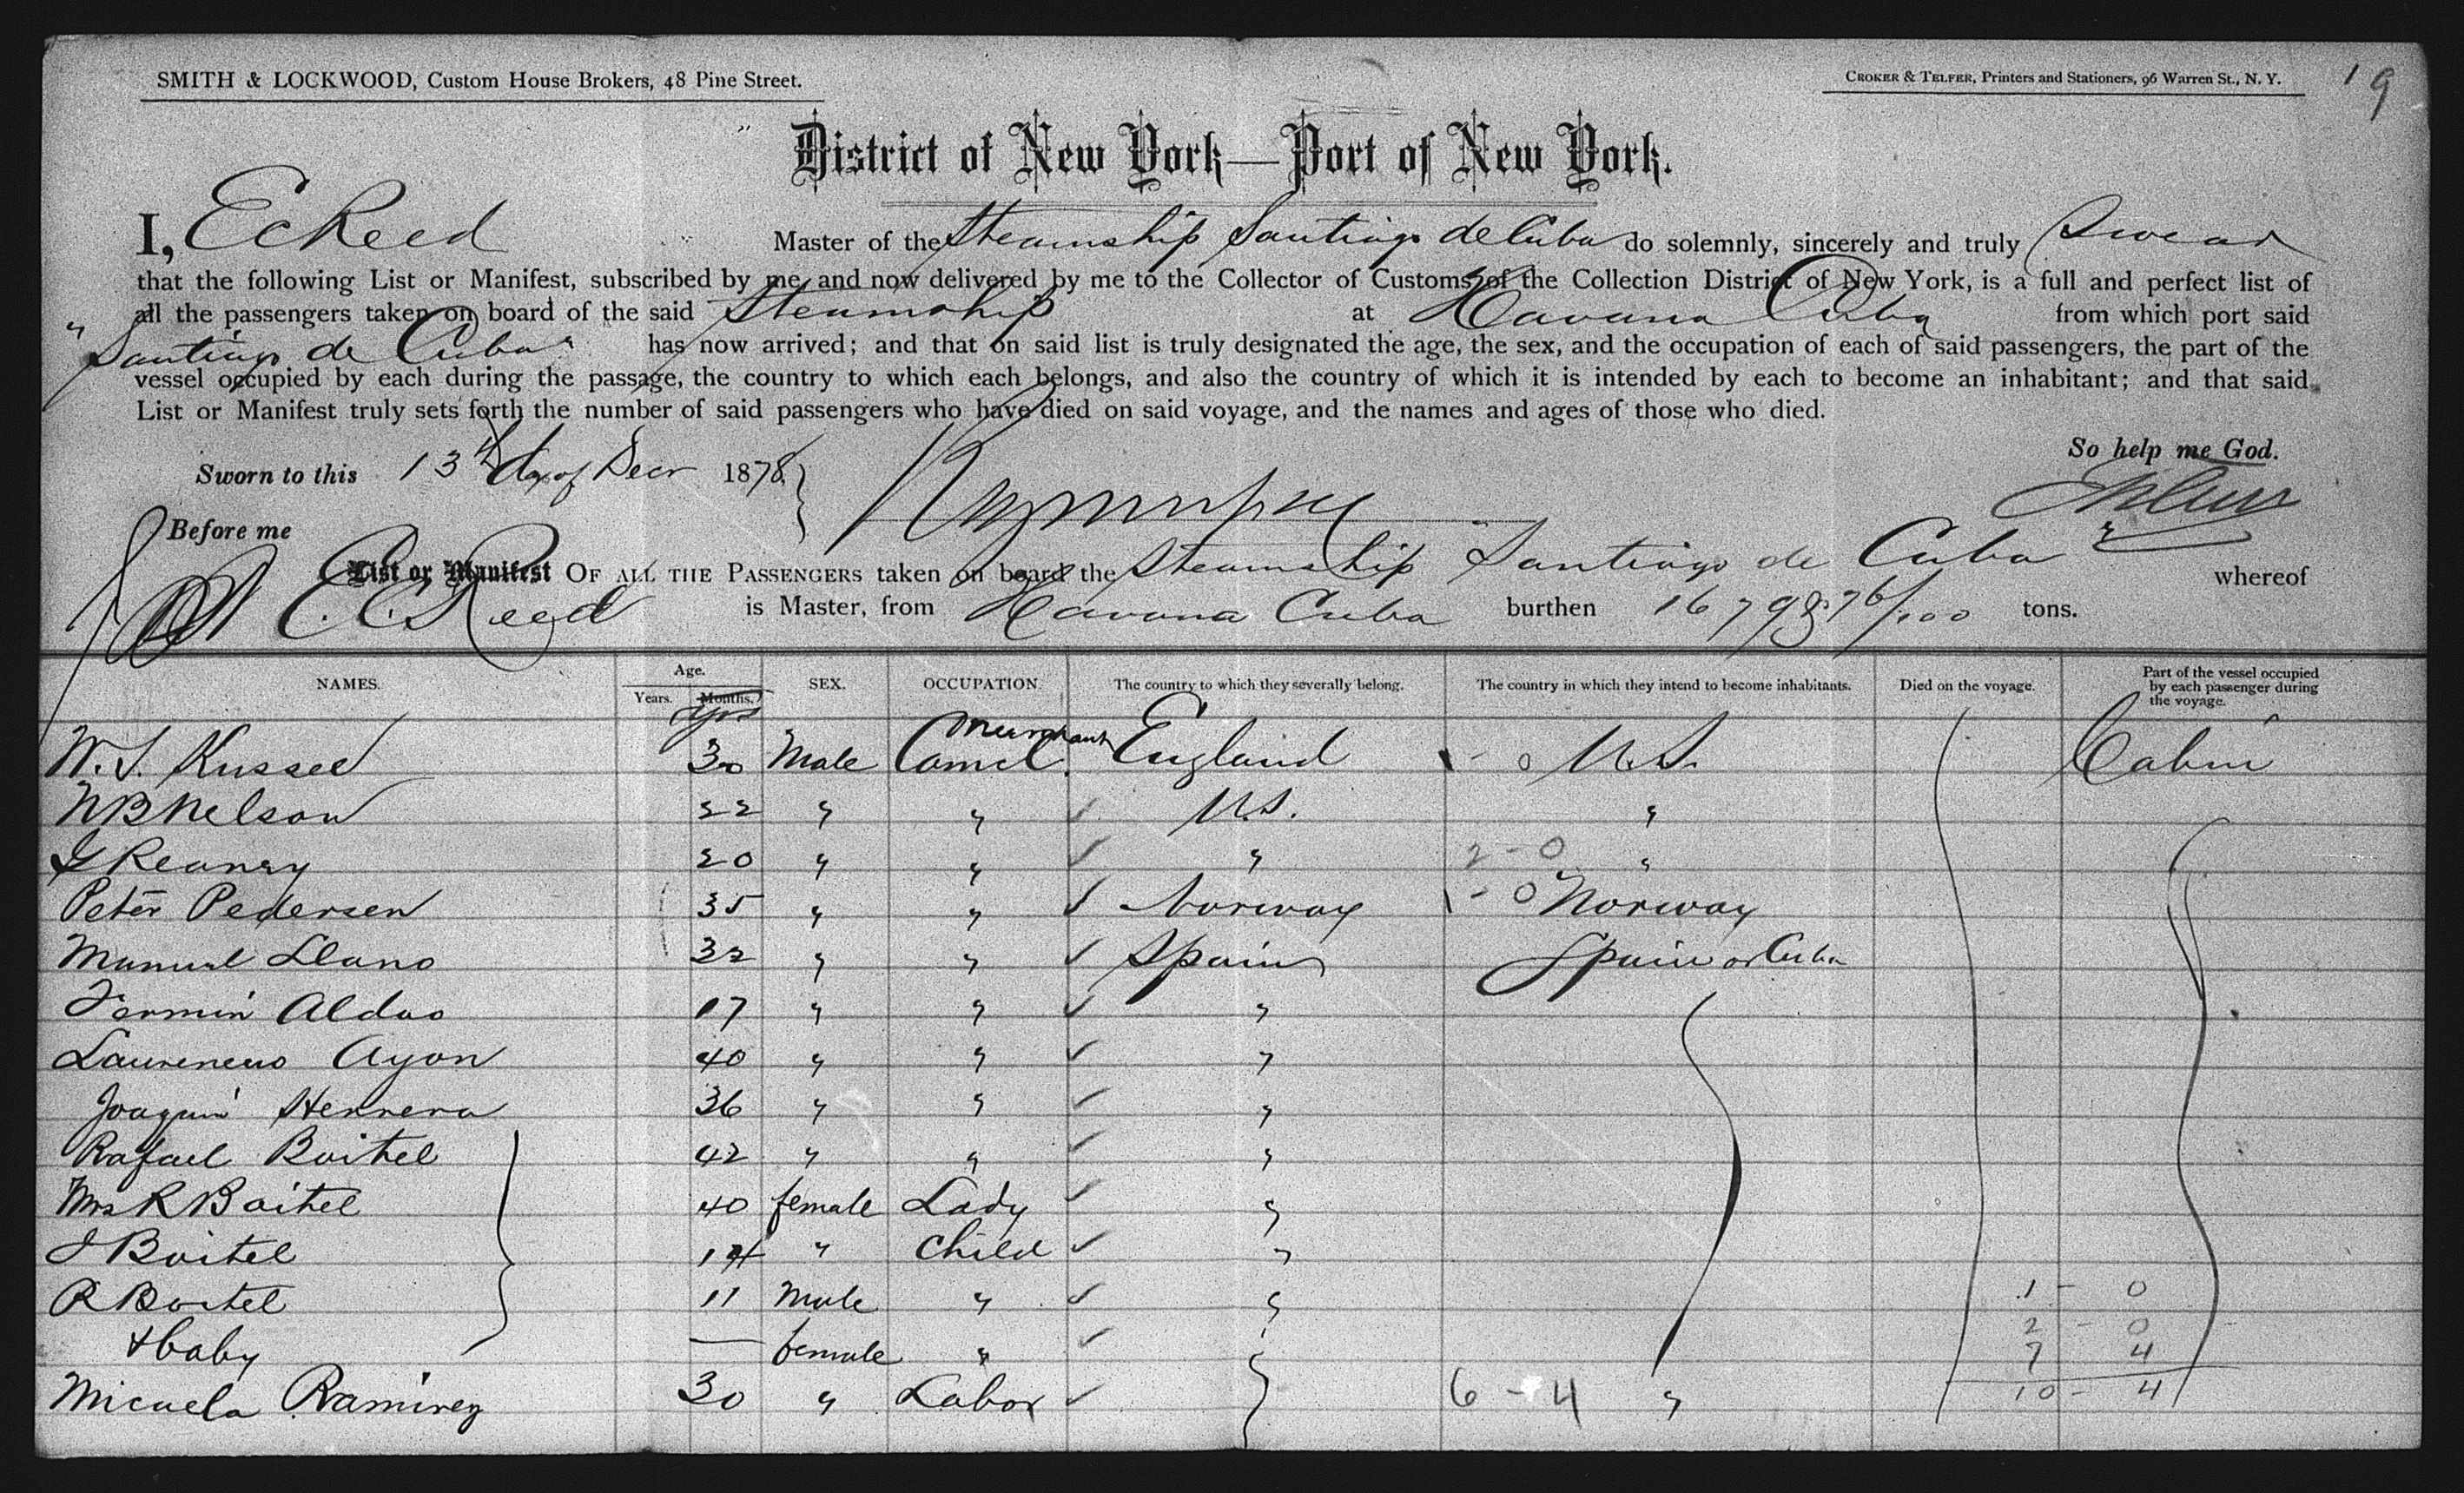 SMITH & LOCKWOOD, Custom House Brokers, 48 Pine Street.
CROKER & TELFER, Printers and Stationers, 96 Warren St., N. Y.
19
District of New York—Port of New York.
I, EC Reed Master of the Steamship Santiago de Cuba do solemnly, sincerely and truly Swear
that the following List or Manifest, subscribed by me, and now delivered by me to the Collector of Customs of the Collection District of New York, is a full and perfect list of
all the passengers taken on board of the said Steamship at Havana Cuba from which port said
"Santiago de Cuba" has now arrived; and that on said list is truly designated the age, the sex, and the occupation of each of said passengers, the part of the
vessel occupied by each during the passage, the country to which each belongs, and also the country of which it is intended by each to become an inhabitant; and that said
List or Manifest truly sets forth the number of said passengers who have died on said voyage, and the names and ages of those who died.
So help me God.
Sworn to this 13th day of Decr 1878
Before me
List or Manifest OF ALL THE PASSENGERS taken on board the Steamship Santiago de Cuba whereof
E. C. Reed is Master, from Havana Cuba burthen tons.
NAMES. Age. Years. Months. SEX. OCCUPATION. The country to which they severally belong. The country in which they intend to become inhabitants. Died on the voyage. Part of the vessel occupied by each passenger during the voyage.
yrs
W. S. Russel 30 Male Merchant England - 0 U.S. Cabin
N B Nelson 22 " " U.S. "
Reaney 20 " " " 2 - 0 "
Peter Pedersen 35 " " Norway 1 - 0 Norway
Manuel Llano 32 " " Spain Spain or Cuba
Fermin Aldao 17 " " "
Laureneus Ayon 40 " " "
Joaquin Herrera 36 " " "
Rafael Boitel 42 " " "
Mrs R Boitel 40 female Lady "
J Boitel 14 " Child "
R Boitel 11 Male " " 1 - 0
& baby — female " " 2 - 0
7 4
Micaela Ramirez 30 " Labor 6 - 4 " 10 - 4